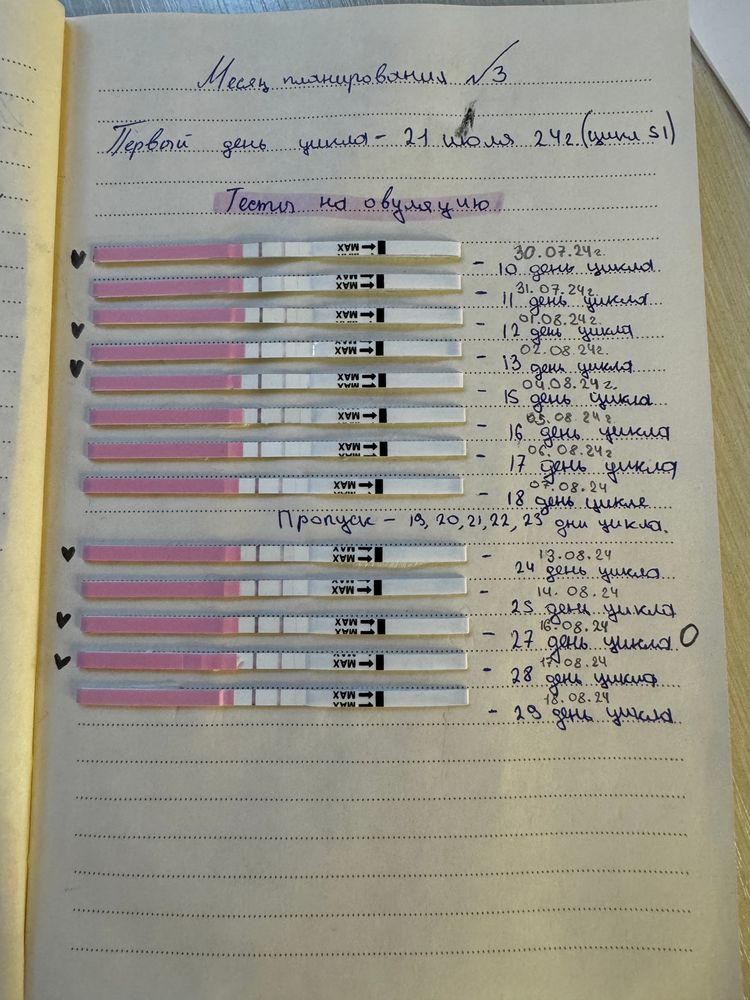 Месяц планирования №3
Первый день цикла - 21 июля 24г (цикл 51)
Тесты на овуляцию
MAX - 30.07.24г.
10 день цикла
MAX - 31.07.24г
11 день цикла
MAX - 01.08.24г
12 день цикла
MAX - 02.08.24г.
13 день цикла
MAX - 04.08.24г.
15 день цикла
MAX - 05.08.24г
16 день цикла
MAX - 06.08.24г
17 день цикла
MAX - 07.08.24
18 день цикле
Пропуск - 19, 20, 21, 22, 23 дни цикла.
MAX - 13.08.24
24 день цикла
MAX - 14.08.24
25 день цикла
MAX - 16.08.24
27 день цикла О
MAX - 17.08.24
28 день цикла
MAX - 18.08.24
29 день цикла